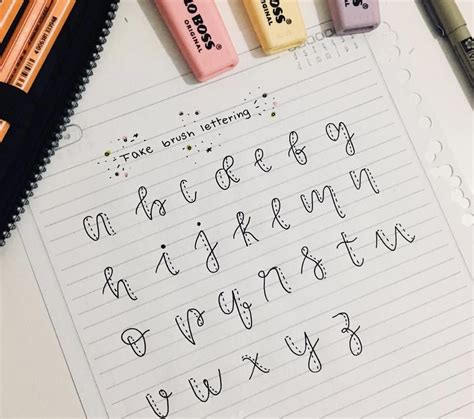 BOSS
ORIGINAL
BOSS
ORIGINAL
ORIGINAL
Fake brush lettering
a b c d e f g
h i j k l m n
o p q r s t u
v w x y z